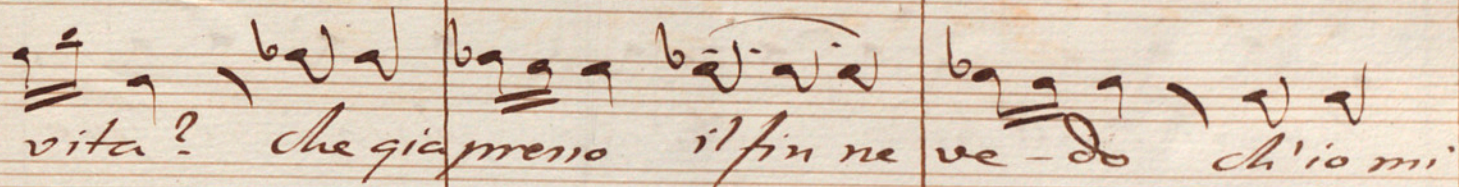 vita? che gia preno il fin ne ve-do ch'io mi